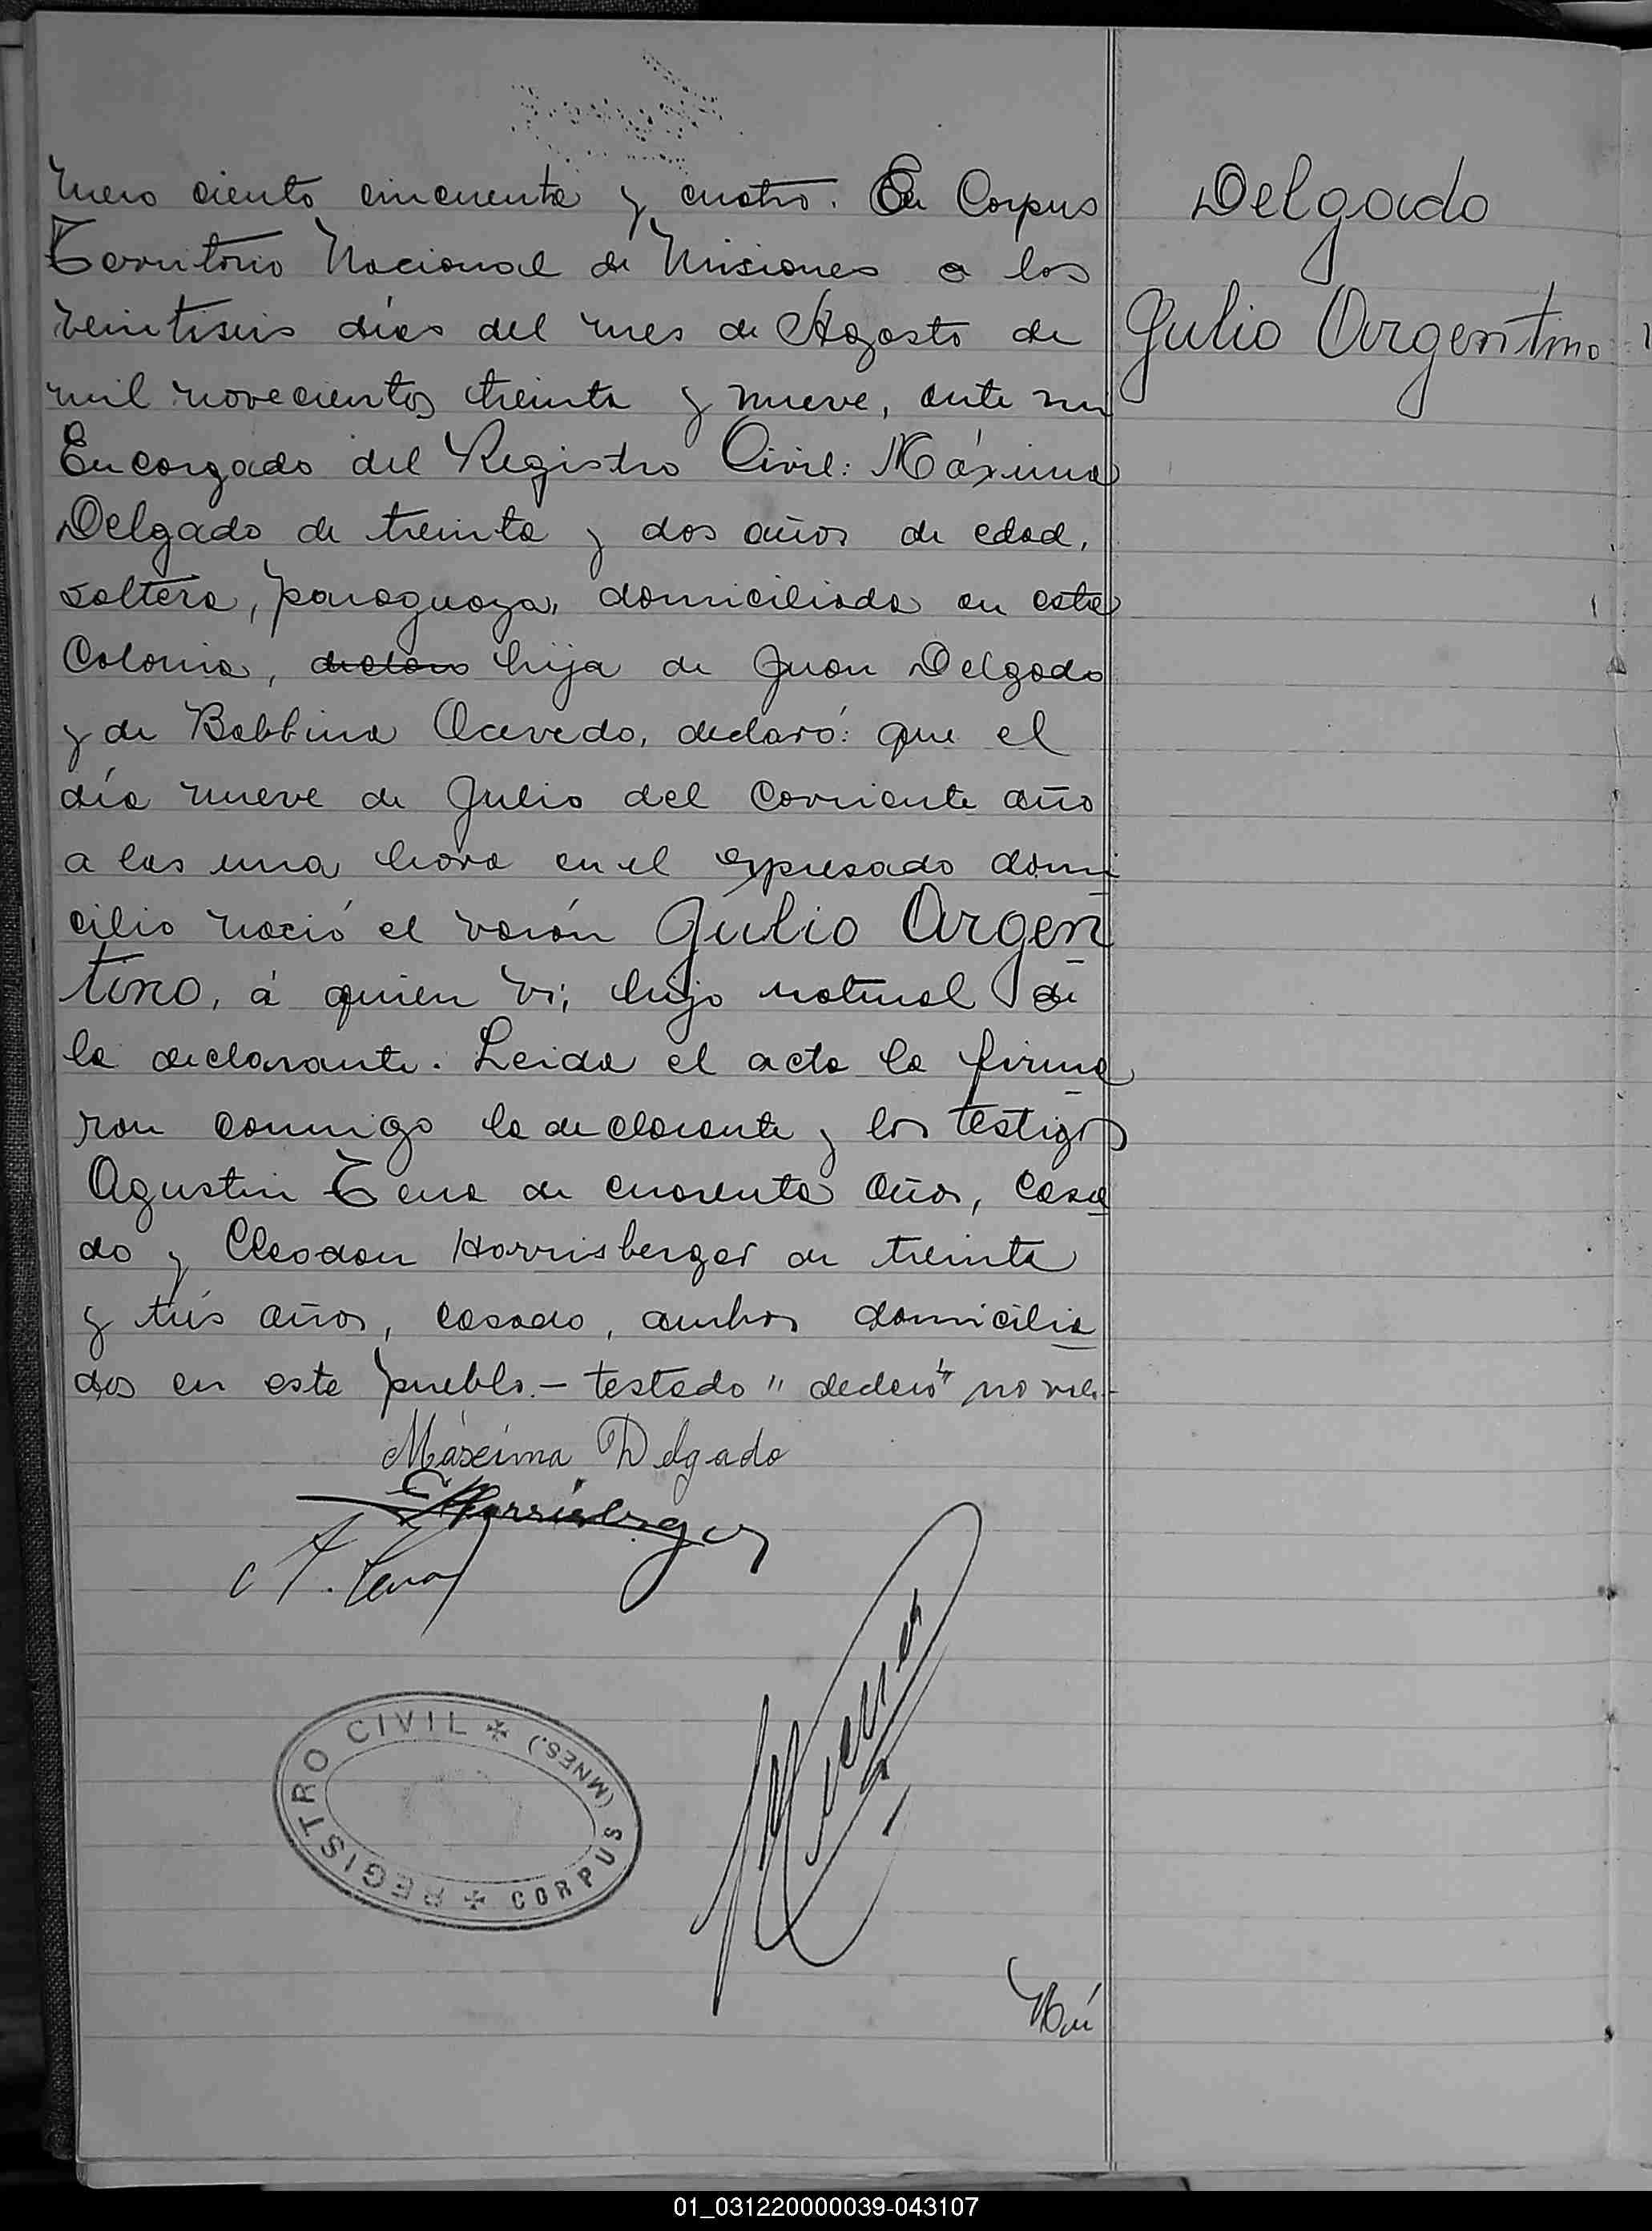 mero ciento cincuenta y cuatro. En Corpus
Territorio Nacional de Misiones a los
veintiseis días del mes de Agosto de
mil novecientos treinta y nueve, ante mi
Encargado del Registro Civil: Máxima
Delgado de treinta y dos años de edad,
soltera, paraguaya, domiciliada en esta
Colonia, declaro hija de Juan Delgado
y de Balbina Acevedo, declaró: que el
día nueve de Julio del corriente año
a las una hora en el expresado domi
cilio nació el varón Julio Argen
tino, á quien vi; hijo natural de
la declarante. Leida el acta la firma
ron conmigo la declarante y los testigos
Agustin Tena de cuarenta años, casa
do y Cleodon Horrisberger de treinta
y tres años, casado, ambos domicilia
dos en este pueblo.- testado " " no vale-
Máxima Delgado
Horrisberger
A. Tena
REGISTRO CIVIL (MNES.) CORPUS
Nú
Delgado
Julio Argentino
01_031220000039-043107